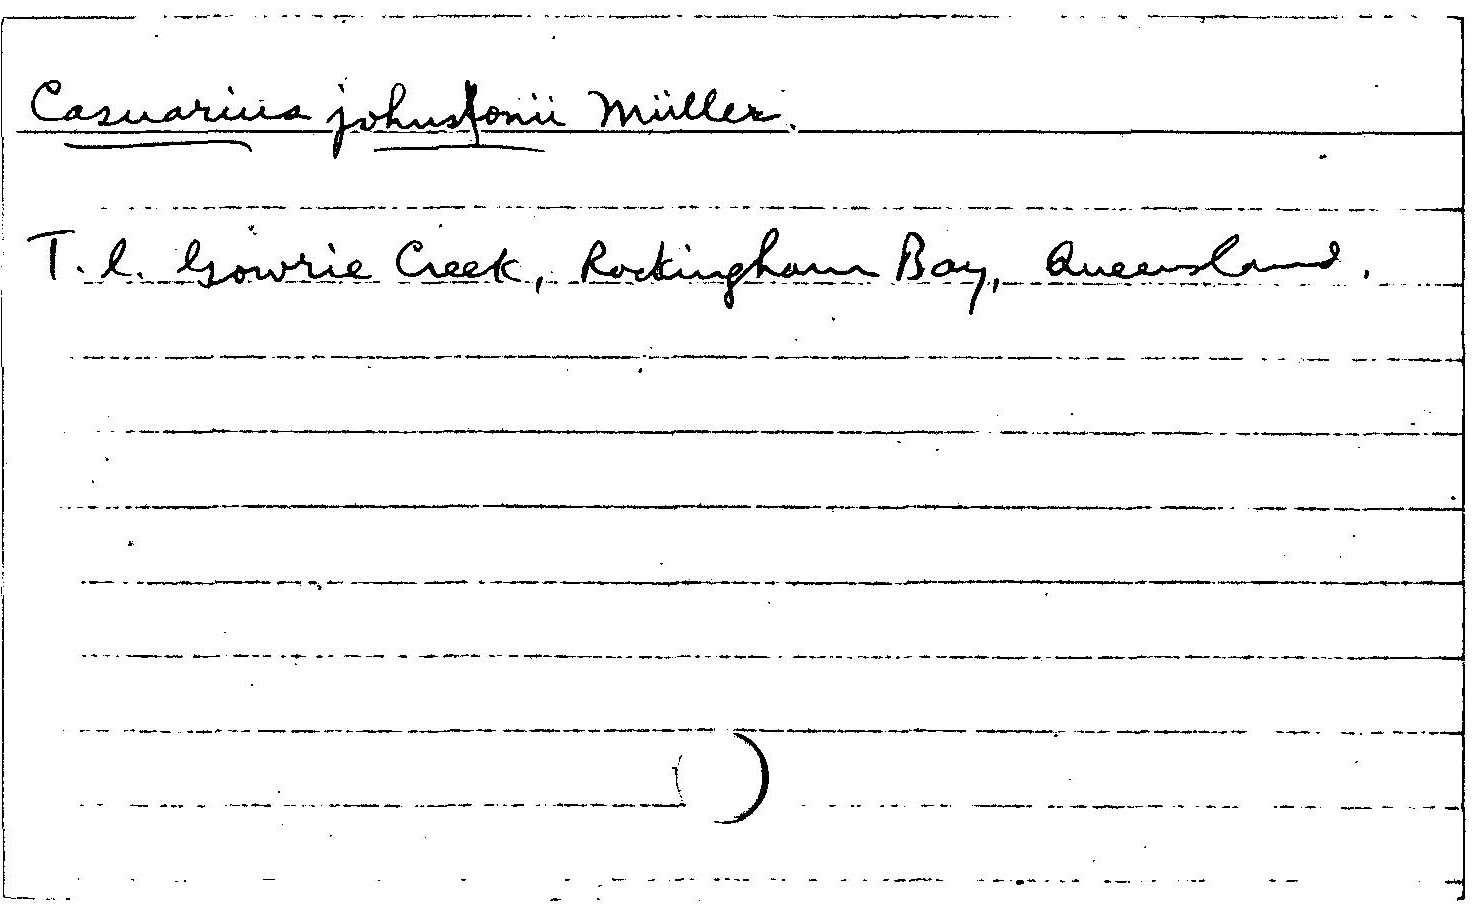 Casuarius johnstonii Müller.
T.l. Gowrie Creek, Rockingham Bay, Queensland.